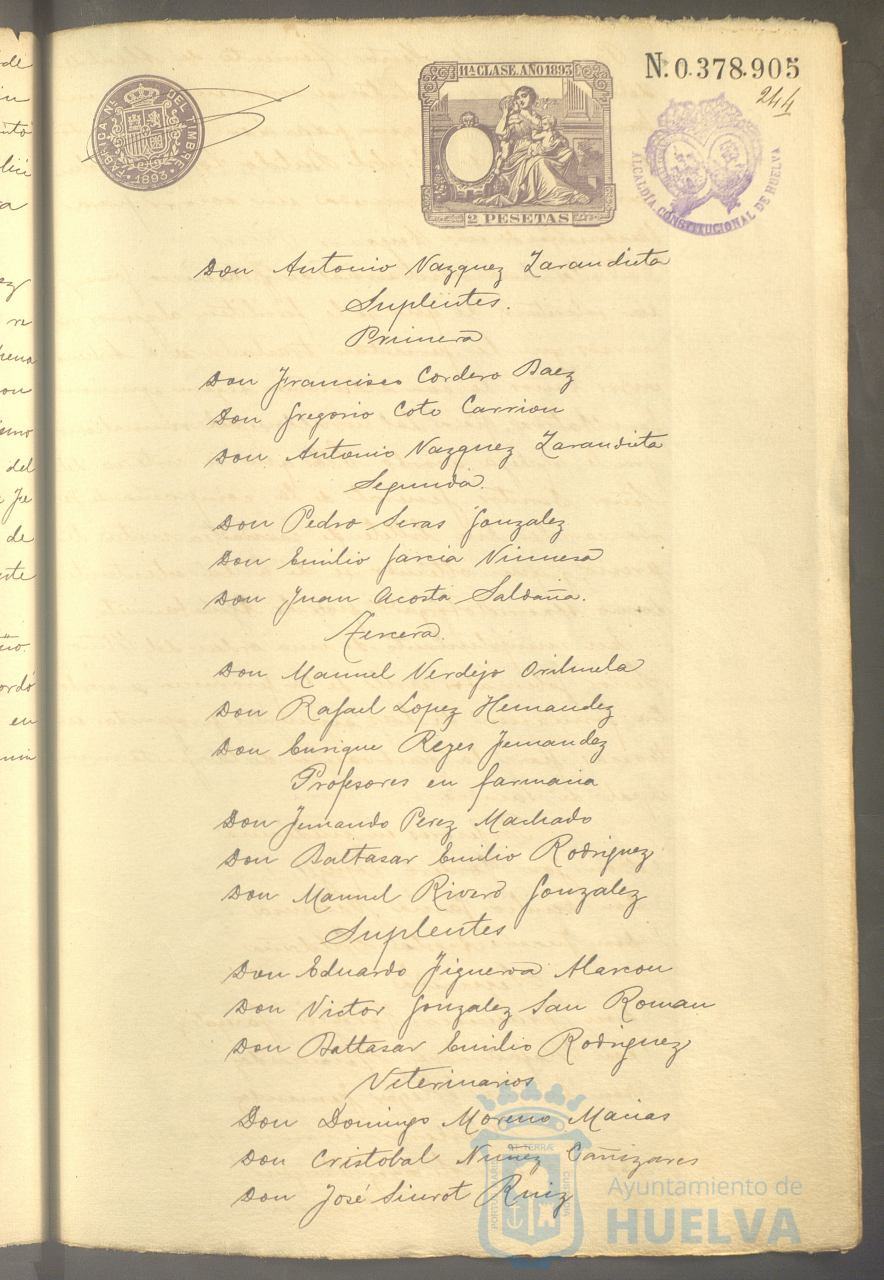 FABRICA NAL DEL TIMBRE
1893
11ª CLASE. AÑO 1893
2 PESETAS
N. 0.378.905
244
ALCALDÍA CONSTITUCIONAL DE HUELVA
Don Antonio Vazquez Zarandieta
Suplentes.
Primera
Don Francisco Cordero Baez
Don Gregorio Coto Carrion
Don Antonio Vazquez Zarandieta
Segunda.
Don Pedro Seras Gonzalez
Don Emilio Garcia
Don Juan Acosta Saldaña.
Tercera.
Don Manuel Verdejo Orihuela
Don Rafael Lopez Hernandez
Don Enrique Reyes Fernandez
Profesores en farmacia
Don Fernando Perez Machado
Don Baltasar Emilio Rodriguez
Don Manuel Rivero Gonzalez
Suplentes
Don Eduardo Figueroa Alarcon
Don Victor Gonzalez San Roman
Don Baltasar Emilio Rodriguez
Veterinarios
Don Domingo Moreno Macias
Don Cristobal Nuñez Cañizares
Don José Siurot Ruiz
Ayuntamiento de
HUELVA